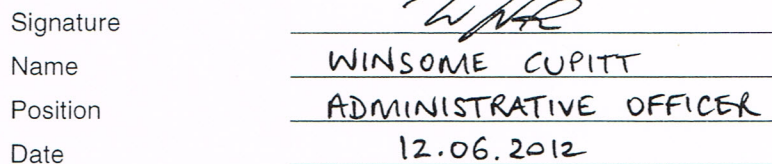 Signature
Name WINSOME CUPITT
Position ADMINISTRATIVE OFFICER
Date 12.06.2012